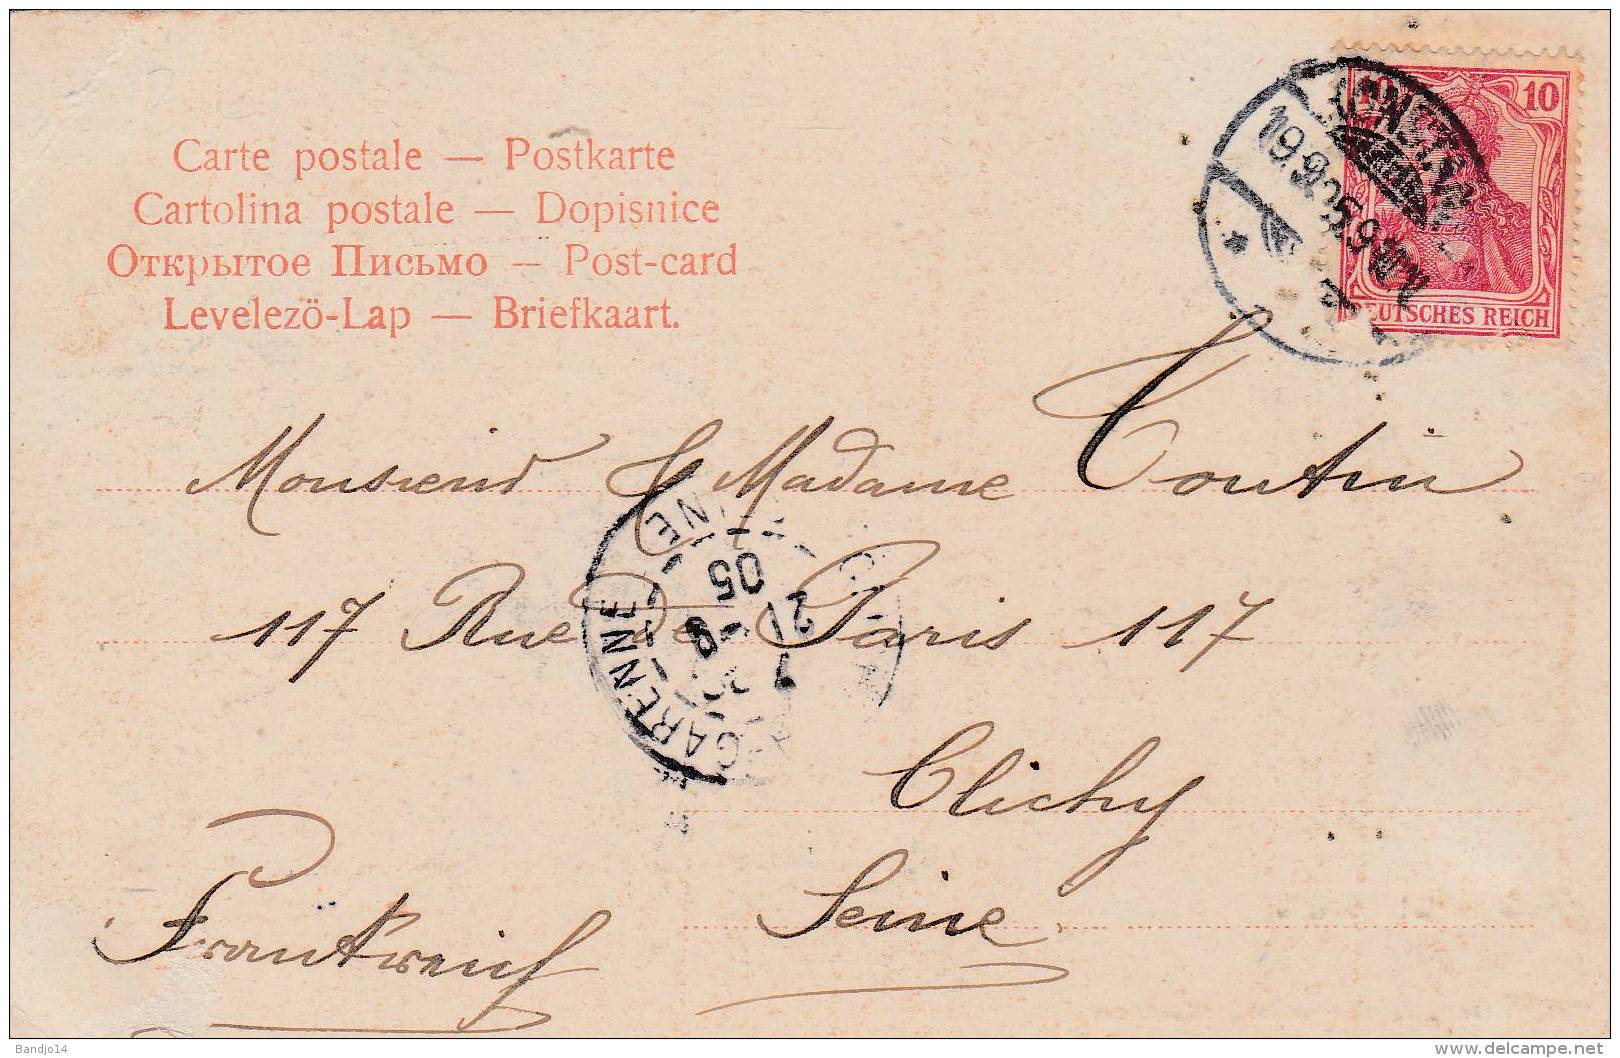 Carte postale — Postkarte
Cartolina postale — Dopisnice
Открытое Письмо — Post-card
Levelezö-Lap — Briefkaart.
10 10
DEUTSCHES REICH
19.9.05.9-10.V.
Monsieur & Madame Toutin
117 Rue de Paris 117
Clichy
Seine
Frankreich
GARENNE
21
9
05
Bandjo14
www.delcampe.net